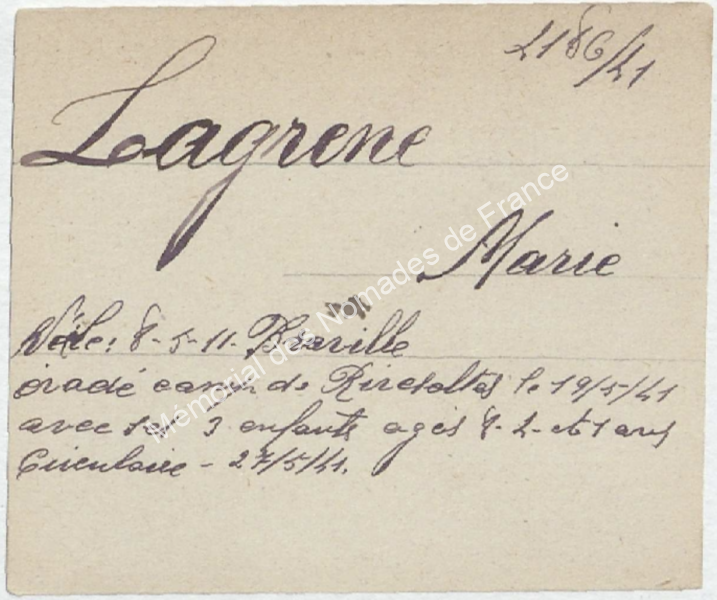 2186/41
Lagrene
Marie
Née: 8-5-11- Braville
évadé camp de Rivesaltes le 19/5/41
avec ses 3 enfants agés 8-2-et 1 ans
Circulaire - 27/5/41.
Mémorial des Nomades de France